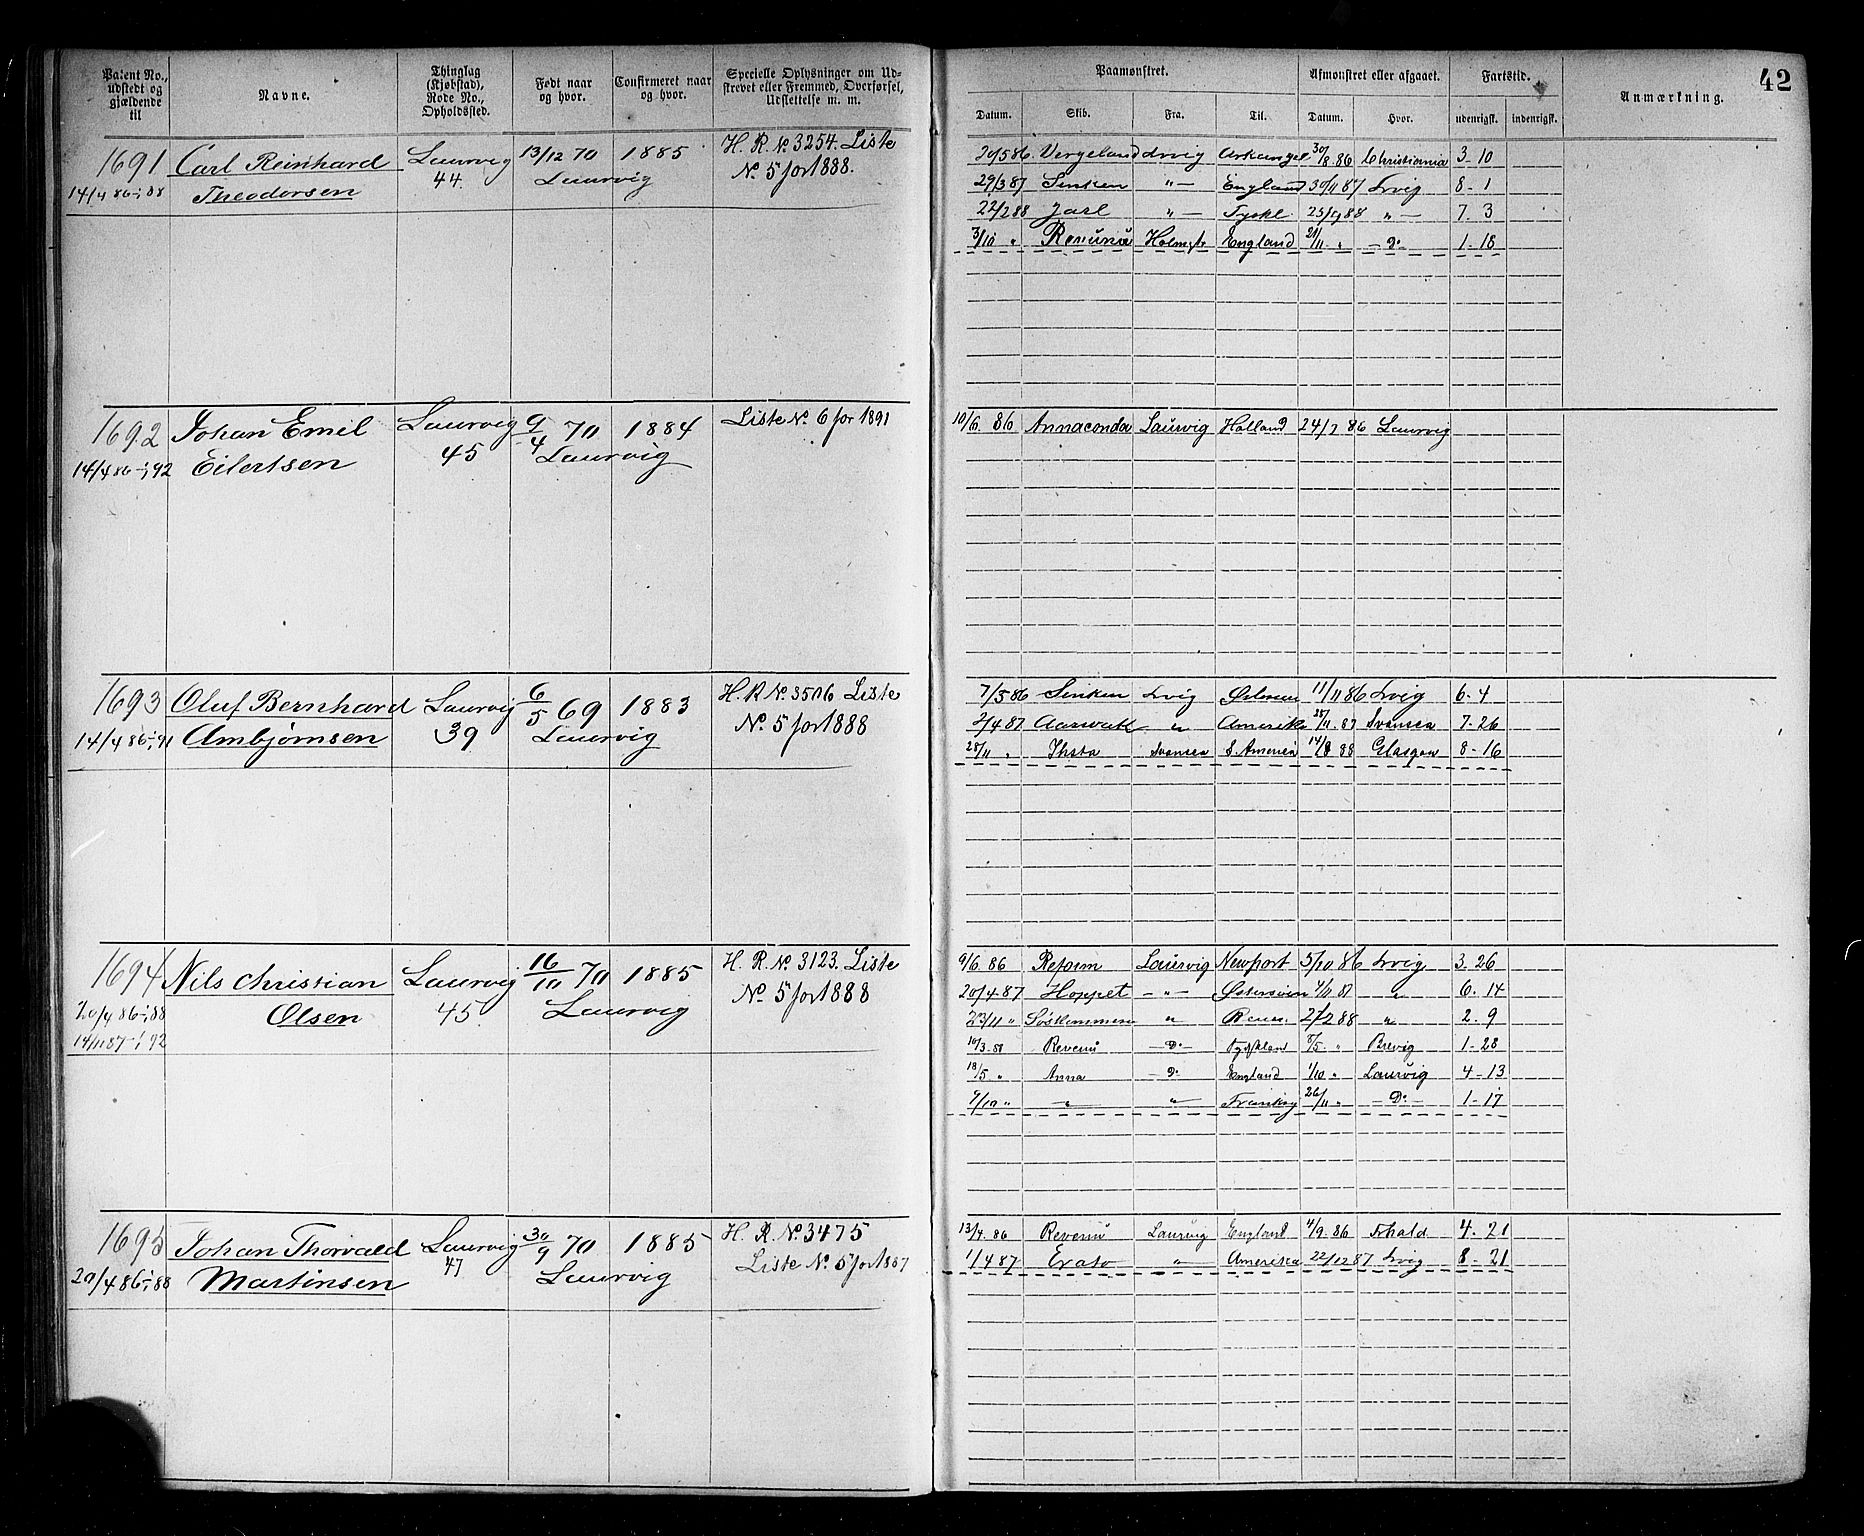 Patent No., udstedt og gjældende til
Navne.
Thinglag (Kjøbstad), Rode No., Opholdssted.
Født naar og hvor.
Confirmeret naar og hvor.
Specielle Oplysninger om Udstrevet eller Fremmed, Overførsel, Udslettelse m. m.
Paamønstret.
Afmønstret eller afgaaet.
Fartstid.
Anmærkning.
42
Datum. Skib. Fra. Til. Datum. Hvor. udenrigsk. indenrigsk.
1691 Carl Reinhard Laurvig 13/12 70 1885 H. R. No. 3254. Liste
14/4 86-i/88 Theodorsen 44. Laurvig No. 5 for 1888.
20/5 86 Vergeland Lrvig Arkangel 30/8 86 Christiania 3-10
29/3 87 Sirken "— England 30/11 87 Lrvig 8-1
22/2 88 Jarl "— Tyskl. 25/9 88 "— 7. 3
3/10 " Revenü Holmestr England 21/11 " —Do 1-18
1692 Johan Emil Laurvig 9/4 70 1884 Liste No. 6 for 1891
14/4 86-i/92 Eilertsen 45 Laurvig
10/6. 86 Annaconda Laurvig Holland 24/7 86 Laurvig
1693 Oluf Bernhard Laurvig 6/5 69 1883 H. R No. 3506 Liste
14/4 86-i/91 Arnbjørnsen 39 Laurvig No. 5 for 1888
7/5 86 Sirken Lrvig 11/11 86 Lrvig 6-4
2/4 87 " Amerika 28/11 87 Svansea 7-26
28/11 " Svansea S. Amerika 14/8 88 Glasgow 8-16
1694 Nils Christian Laurvig 16/10 70 1885 H. R. No. 3123. Liste
20/4 86-i/88 Olsen 45 Laurvig No. 5 for 1888
14/11 87-i/92
9/6. 86 Reform Laurvig Newport 5/10 86 Lrvig 3. 26
20/4 87 Hoppet —"— Østersøen 4/11 87 " 6. 14
23/11 " " 2/2 88 " 2. 9
10/3. 88 Revenü —Do— Tyskland 8/5 " Brevig 1-28
18/5 " Anna —Do England 1/10 " Laurvig 4-13
9/10 " —"— " Frankrig 26/11 " —Do— 1-17
1695 Johan Thorvald Laurvig 30/9 70 1885 H. R. No. 3475
20/4 86-i/88 Martinsen 47 Laurvig Liste No. 5 for 1887
13/4. 86 Revenü Laurvig England 4/9. 86 Frhald. 4. 21
1/4 87 Erato " Amerika 22/12 87 Lrvig 8-21